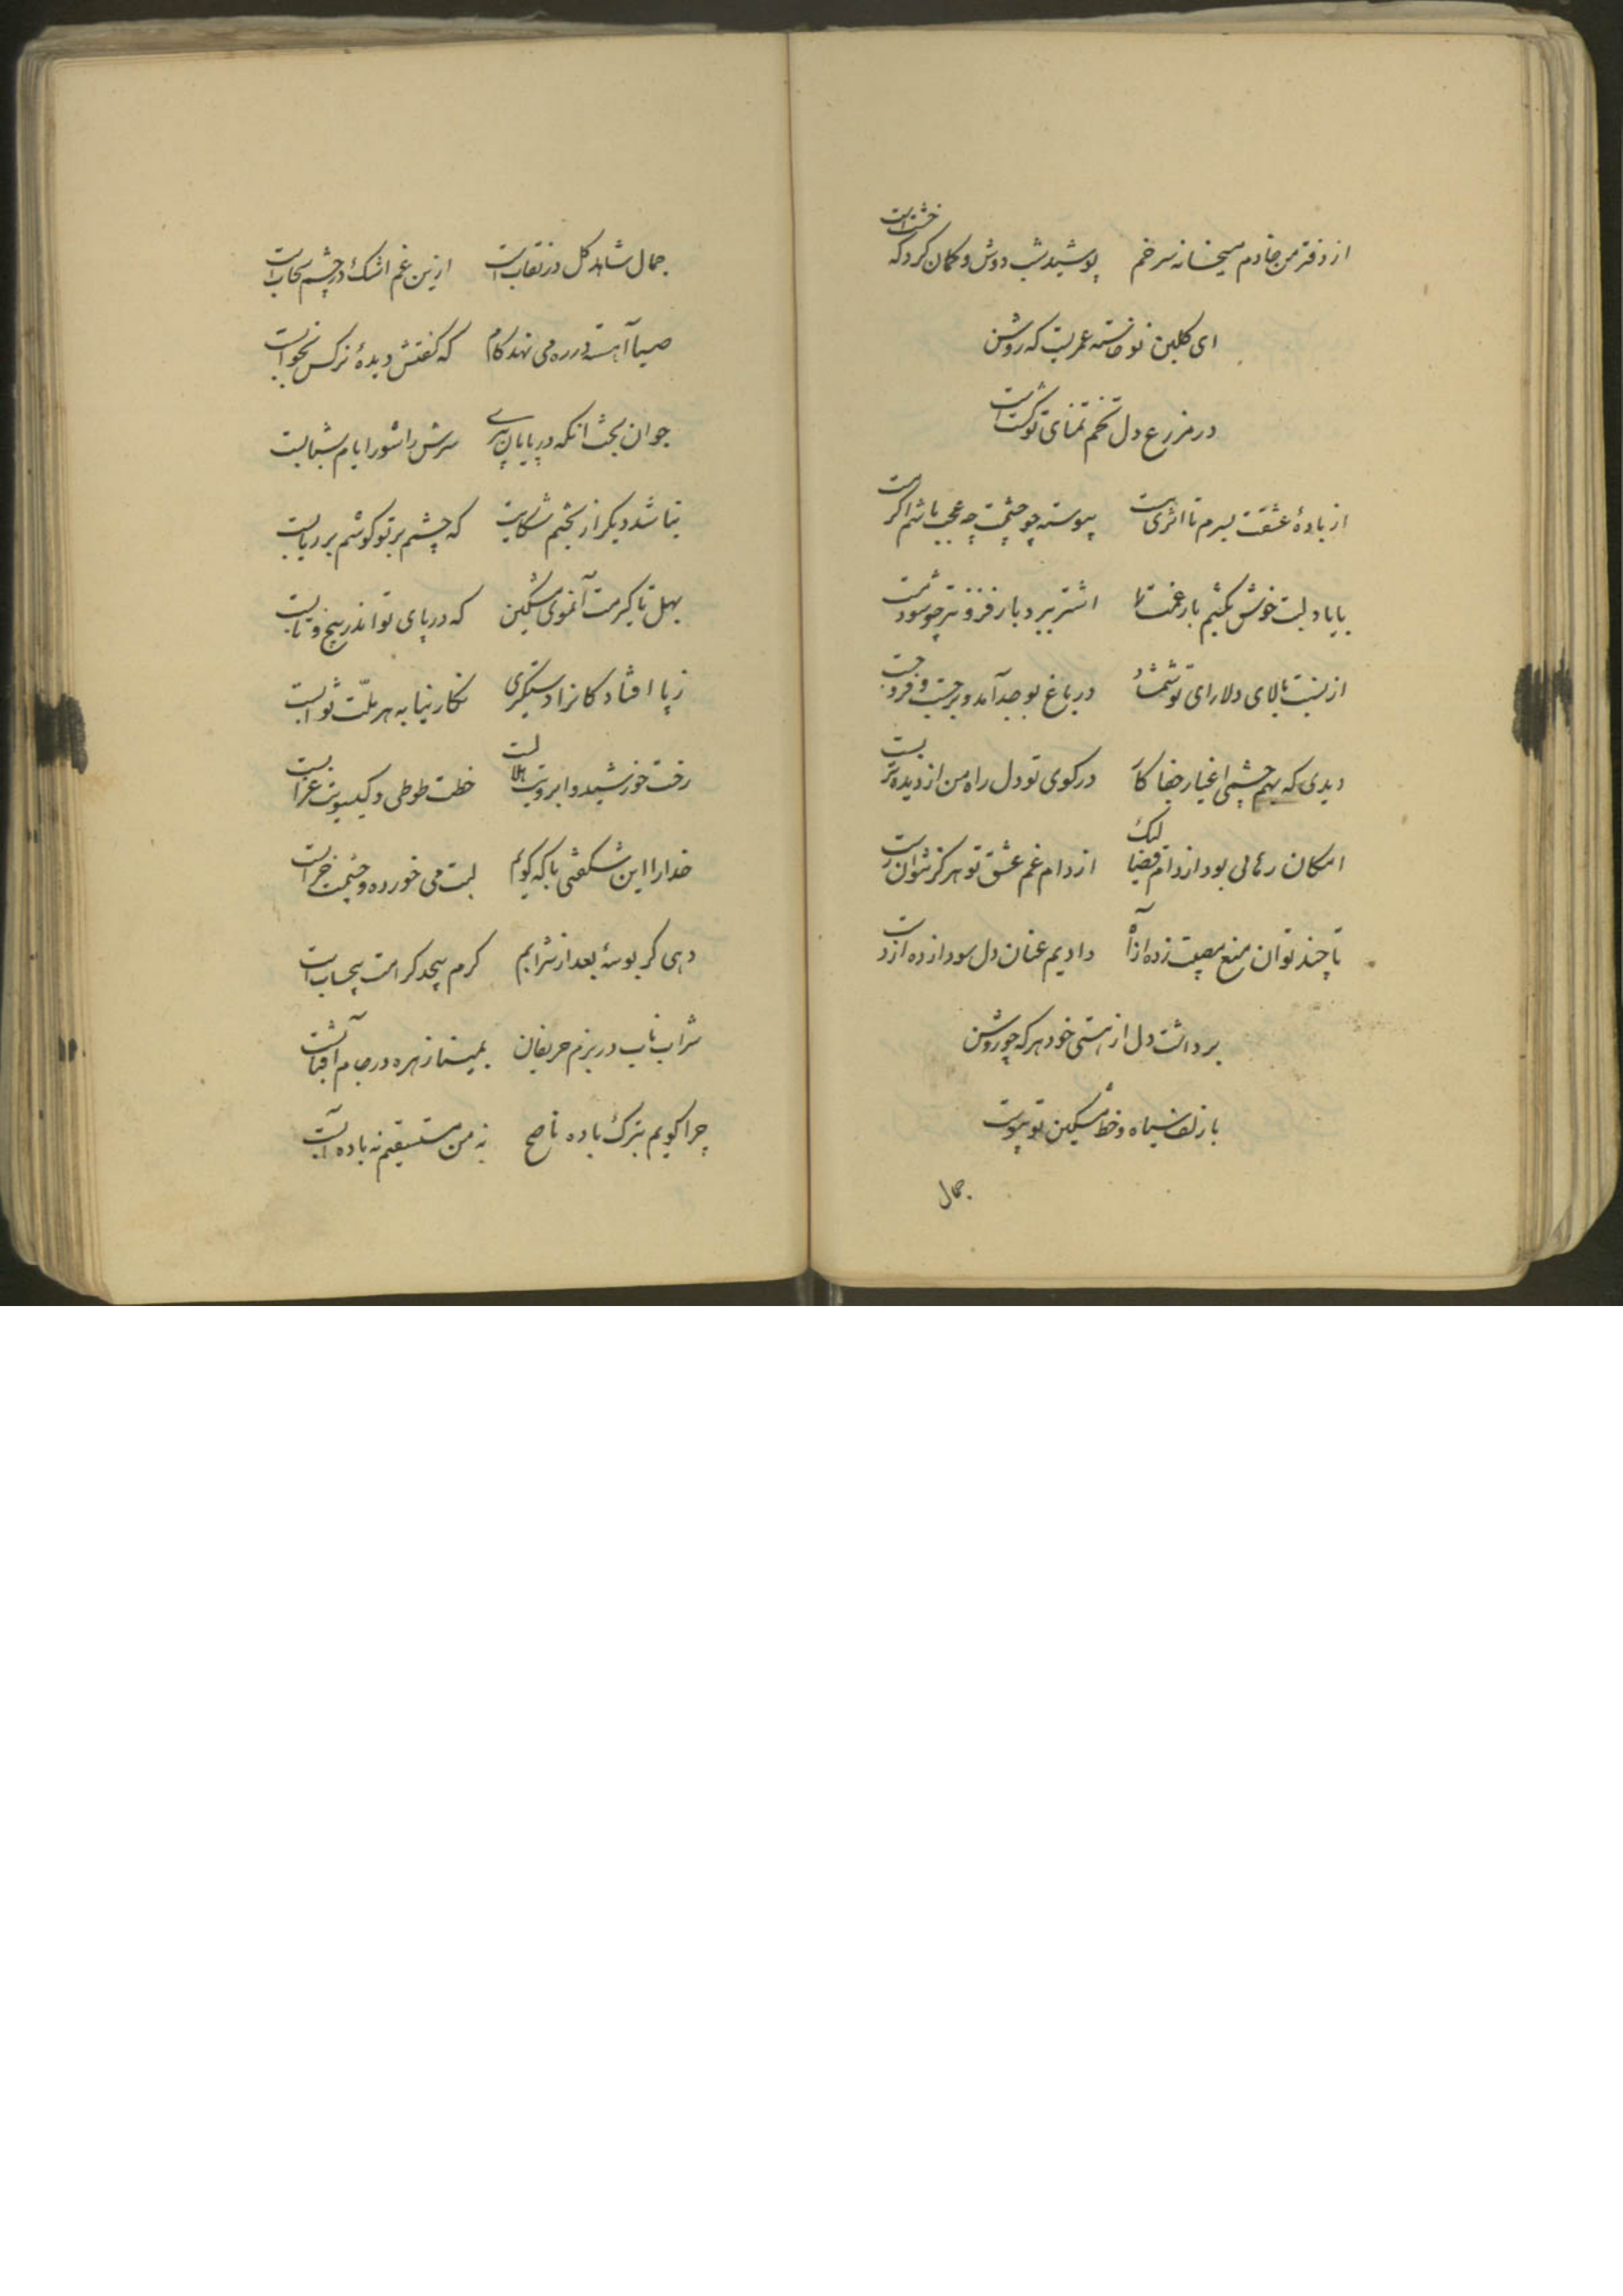 از دفتر من خادم میخانه سر خم پوشید شب دوش و گمان کرد که خشت است
ای گلبن نو خاسته عمریست که روشن
در مزرع دل تخم تمنای تو کشت است
از باده عشقت بسرم تا اثری هست پیوسته چو چشمت چه عجب باشم اگر مست
با یاد لبت خوش بکشیم بار غمت را اشتر ببرد بار فزونتر چو شود مست
از نسبت بالای دلارای تو شمشاد در باغ بوجد آمد و برجست و فرو جست
دیدی که بهم چشمی اغیار جفا کار در کوی تو دل راه من از دیده تر بست
امکان رهائی بود از دام قضا لیک از دام غم عشق تو هرگز نتوان رست
تا چند توان منع مصیبت زده از آه دادیم عنان دل سودازده از دست
برداشت دل از هستی خود هر که چو روشن
با زلف سیاه و خط مشکین تو پیوست
جمال
جمال شاهد گل در نقاب است ازین غم اشک در چشم سحاب است
صبا آهسته در ره می نهد گام که گفتش دیدهٔ نرگس بخواب است
جوان بخت آنکه در پایان پیری سرش را شور ایام شبابست
نباشد دیگر از بختم شکایت که چشمم بر تو گوشم بر ربابست
بهل تا گیرمت آنموی مشکین که در پای تو اندر پیچ و تابست
ز پا افتادگانرا دستگیری نگارینا به هر ملّت ثوابست
رخت خورشید و ابرویت هلالست خطت طوطی و گیسویت غرابست
خدا را این شگفتی با که گویم لبت می خورده و چشمت خرابست
دهی گر بوسهٔ بعد از شرابم کرم بیحد کرامت بیحساب است
شراب ناب در بزم حریفان بمینا زهره در جام آفتابست
چرا گویم بترک باده ناصح نه من مستسقیم نه باده آبست